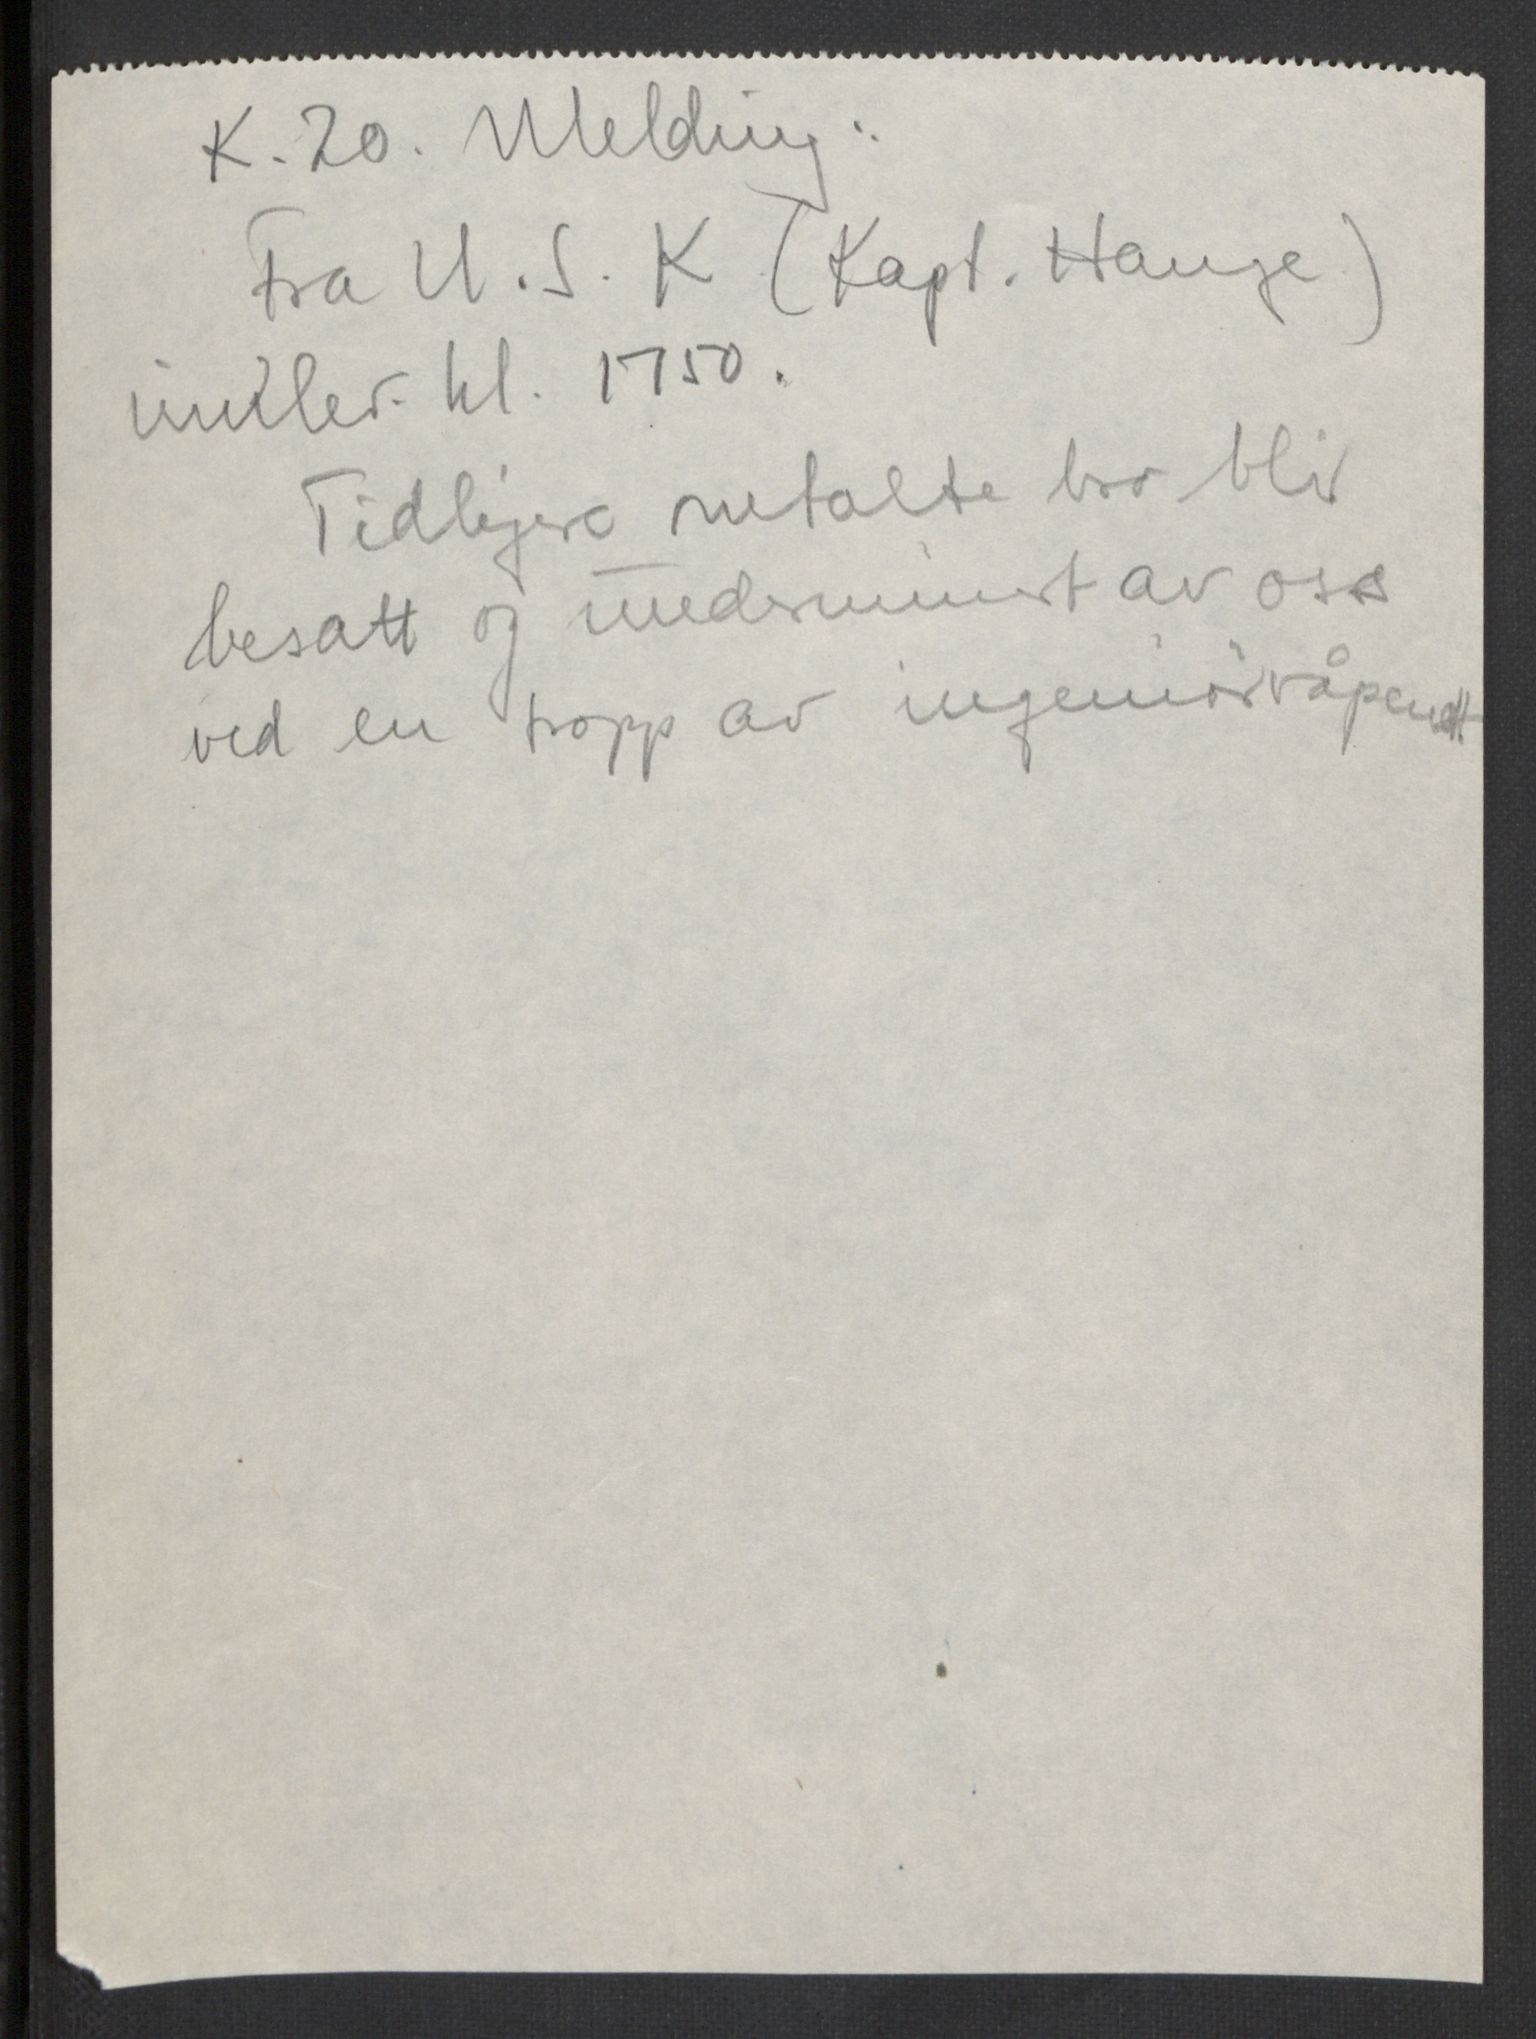 K. 20. Melding:
Fra U.S.K (Kapt. Hauge)
innlev. kl. 1750.
Tidligere omtalte bro blir
besatt og underminert av oss
ved en tropp av ingeniörvåpenet.